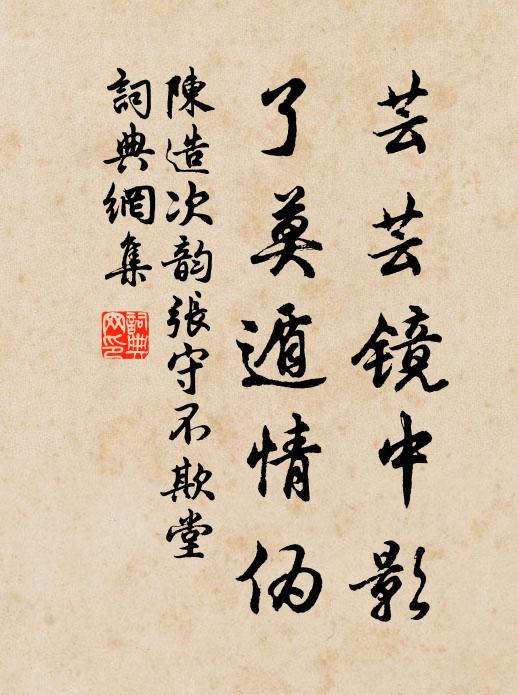 芸芸镜中影
了莫遁情伪
陳造次韵張守不欺堂
詞典網集
詞典
网印